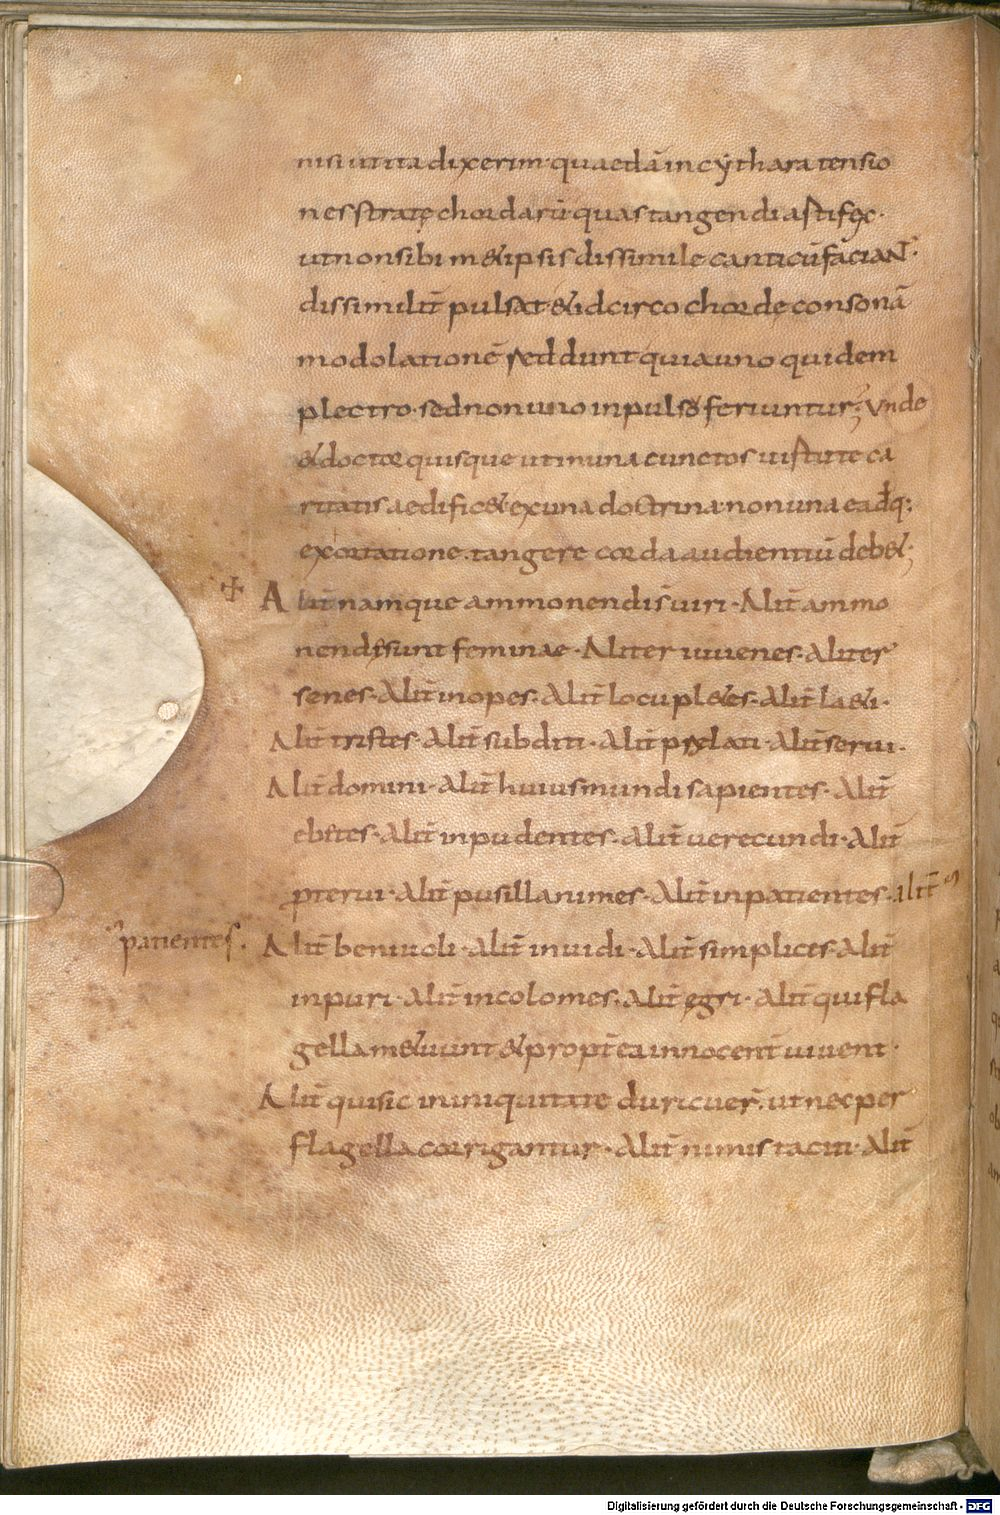 nisi ut ita dixerim· quaedā in cythara tensio
nes stratę chordarū· quas tangendi astifęx·
ut non sibi m&ipsis dissimile canticū facianT·
dissimilit̄ pulsat· & idcirco chorde consonā
modolationē reddunt quia uno quidem
plectro· sed non uno inpulsu feriuntur; Unde
& doctor quisque ut in una cunctos uistute ca
ritatis aedific&· ex una doctrina· non una eadq:
exortatione· tangere corda audientiū deb&;
Alit̄ namque ammonendi s̄ uiri· Alit̄ ammo
nendi sunt feminae· Aliter iuuenes· aliter
senes· Alit̄ inopes· Alit̄ locupl&es· Alit̄ l&i·
Alit̄ tristes· Alit̄ subditi· Alit̄ prelati· Alit̄ serui·
Alit̄ domini· Alit̄ huius mundi sapientes· Alit̄
ebetes· Alit̄ inpudentes· Alit̄ uerecundi· Alit̄
pterui· Alit̄ pusillanimes· Alit̄ inpatientes· alit̄
patientes·
Alit̄ beniuoli· Alit̄ inuidi· Alit̄ simplices· Alit̄
inpuri· Alit̄ incolomes· Alit̄ egri· Alit̄ qui fla
gella m&uunt & propt̄ea innocent̄ uiuent·
Alit̄ qui sic in iniquitate duricuer̄· ut nec per
flagella corrigantur· Alit̄ nimis taciti· Alit̄
Digitalisierung gefördert durch die Deutsche Forschungsgemeinschaft - DFG